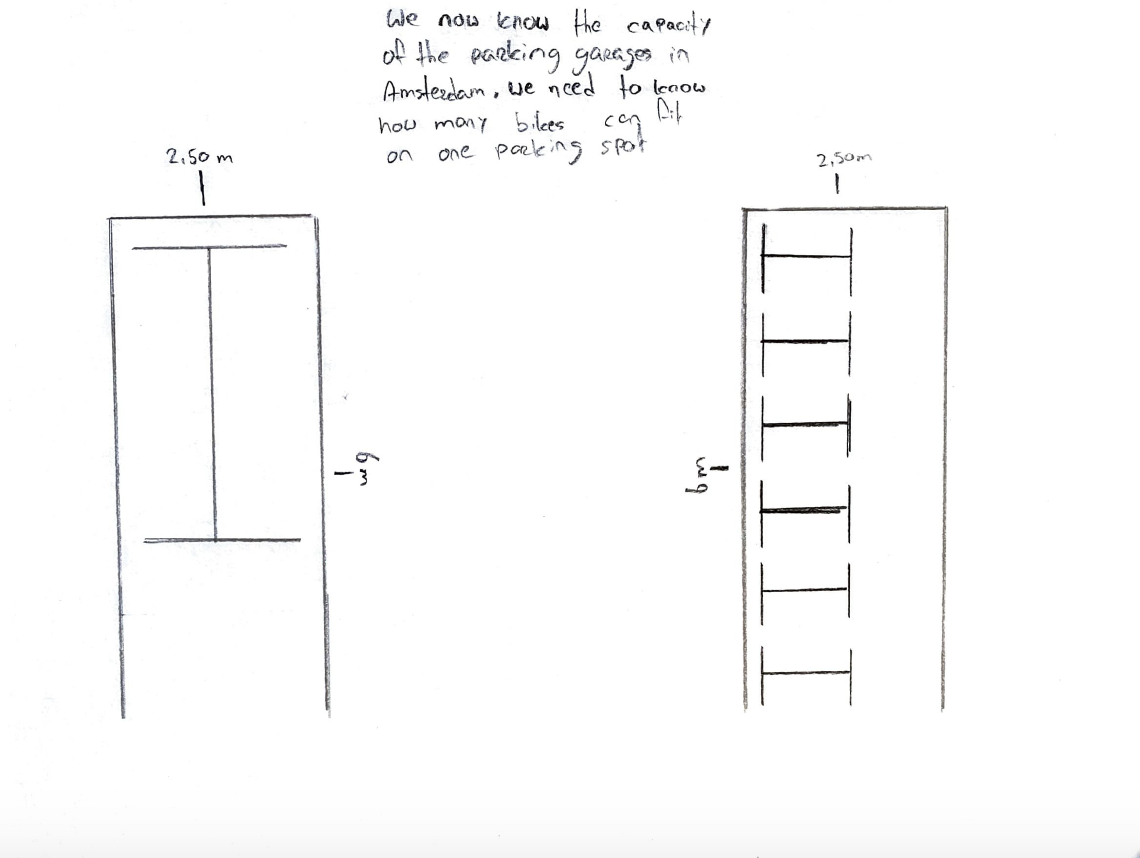 We now know the capacity
of the parking garages in
Amsterdam, we need to know
how many bikes can fit
on one parking spot
2,50 m
2,50m
6m
6m